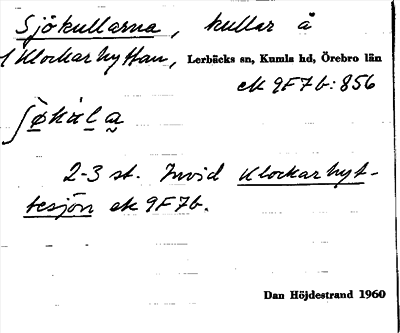 Sjökullarna, kullar å
Klockarhyttan, Lerbäcks sn, Kumla hd, Örebro län
ek 9F7b:856
2-3 st. Invid Klockarhyt-
tesjön ek 9F7b.
Dan Höjdestrand 1960